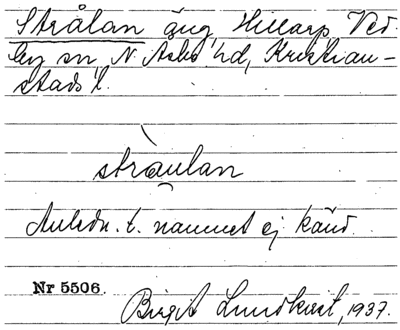 Strålan äng Hillarp, Ved-
by sn, N. Åsbo hd, Kristian-
stads l.
stràulan
Anledn. t. namnet ej känd.
Nr 5506.
Birgit Lundkvist, 1937.